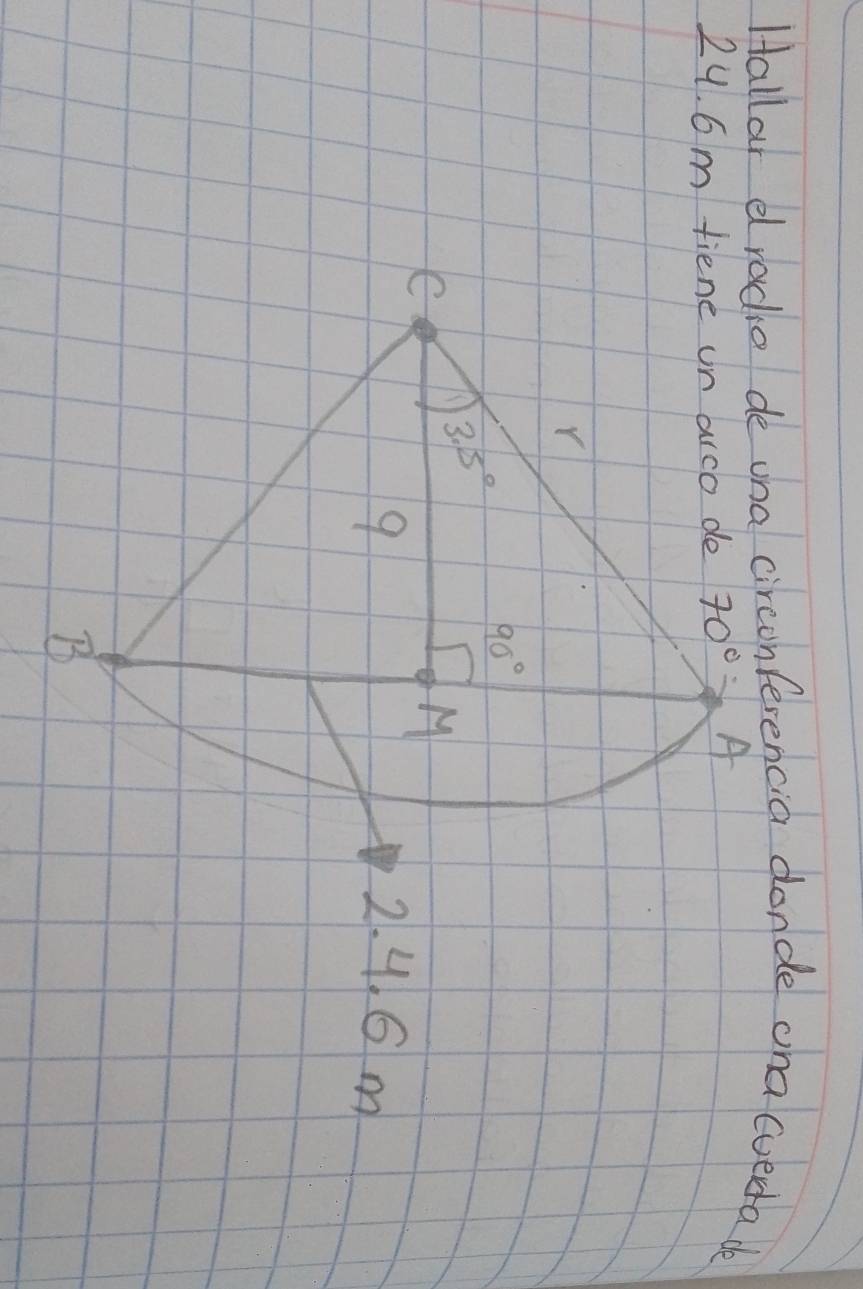 Hallar el radio de una circonferencia donde una cuerda de
24.6 m tiene un arco de 70°:
A
r
90°
C
3.5°
9
M
2.4.6 m
B